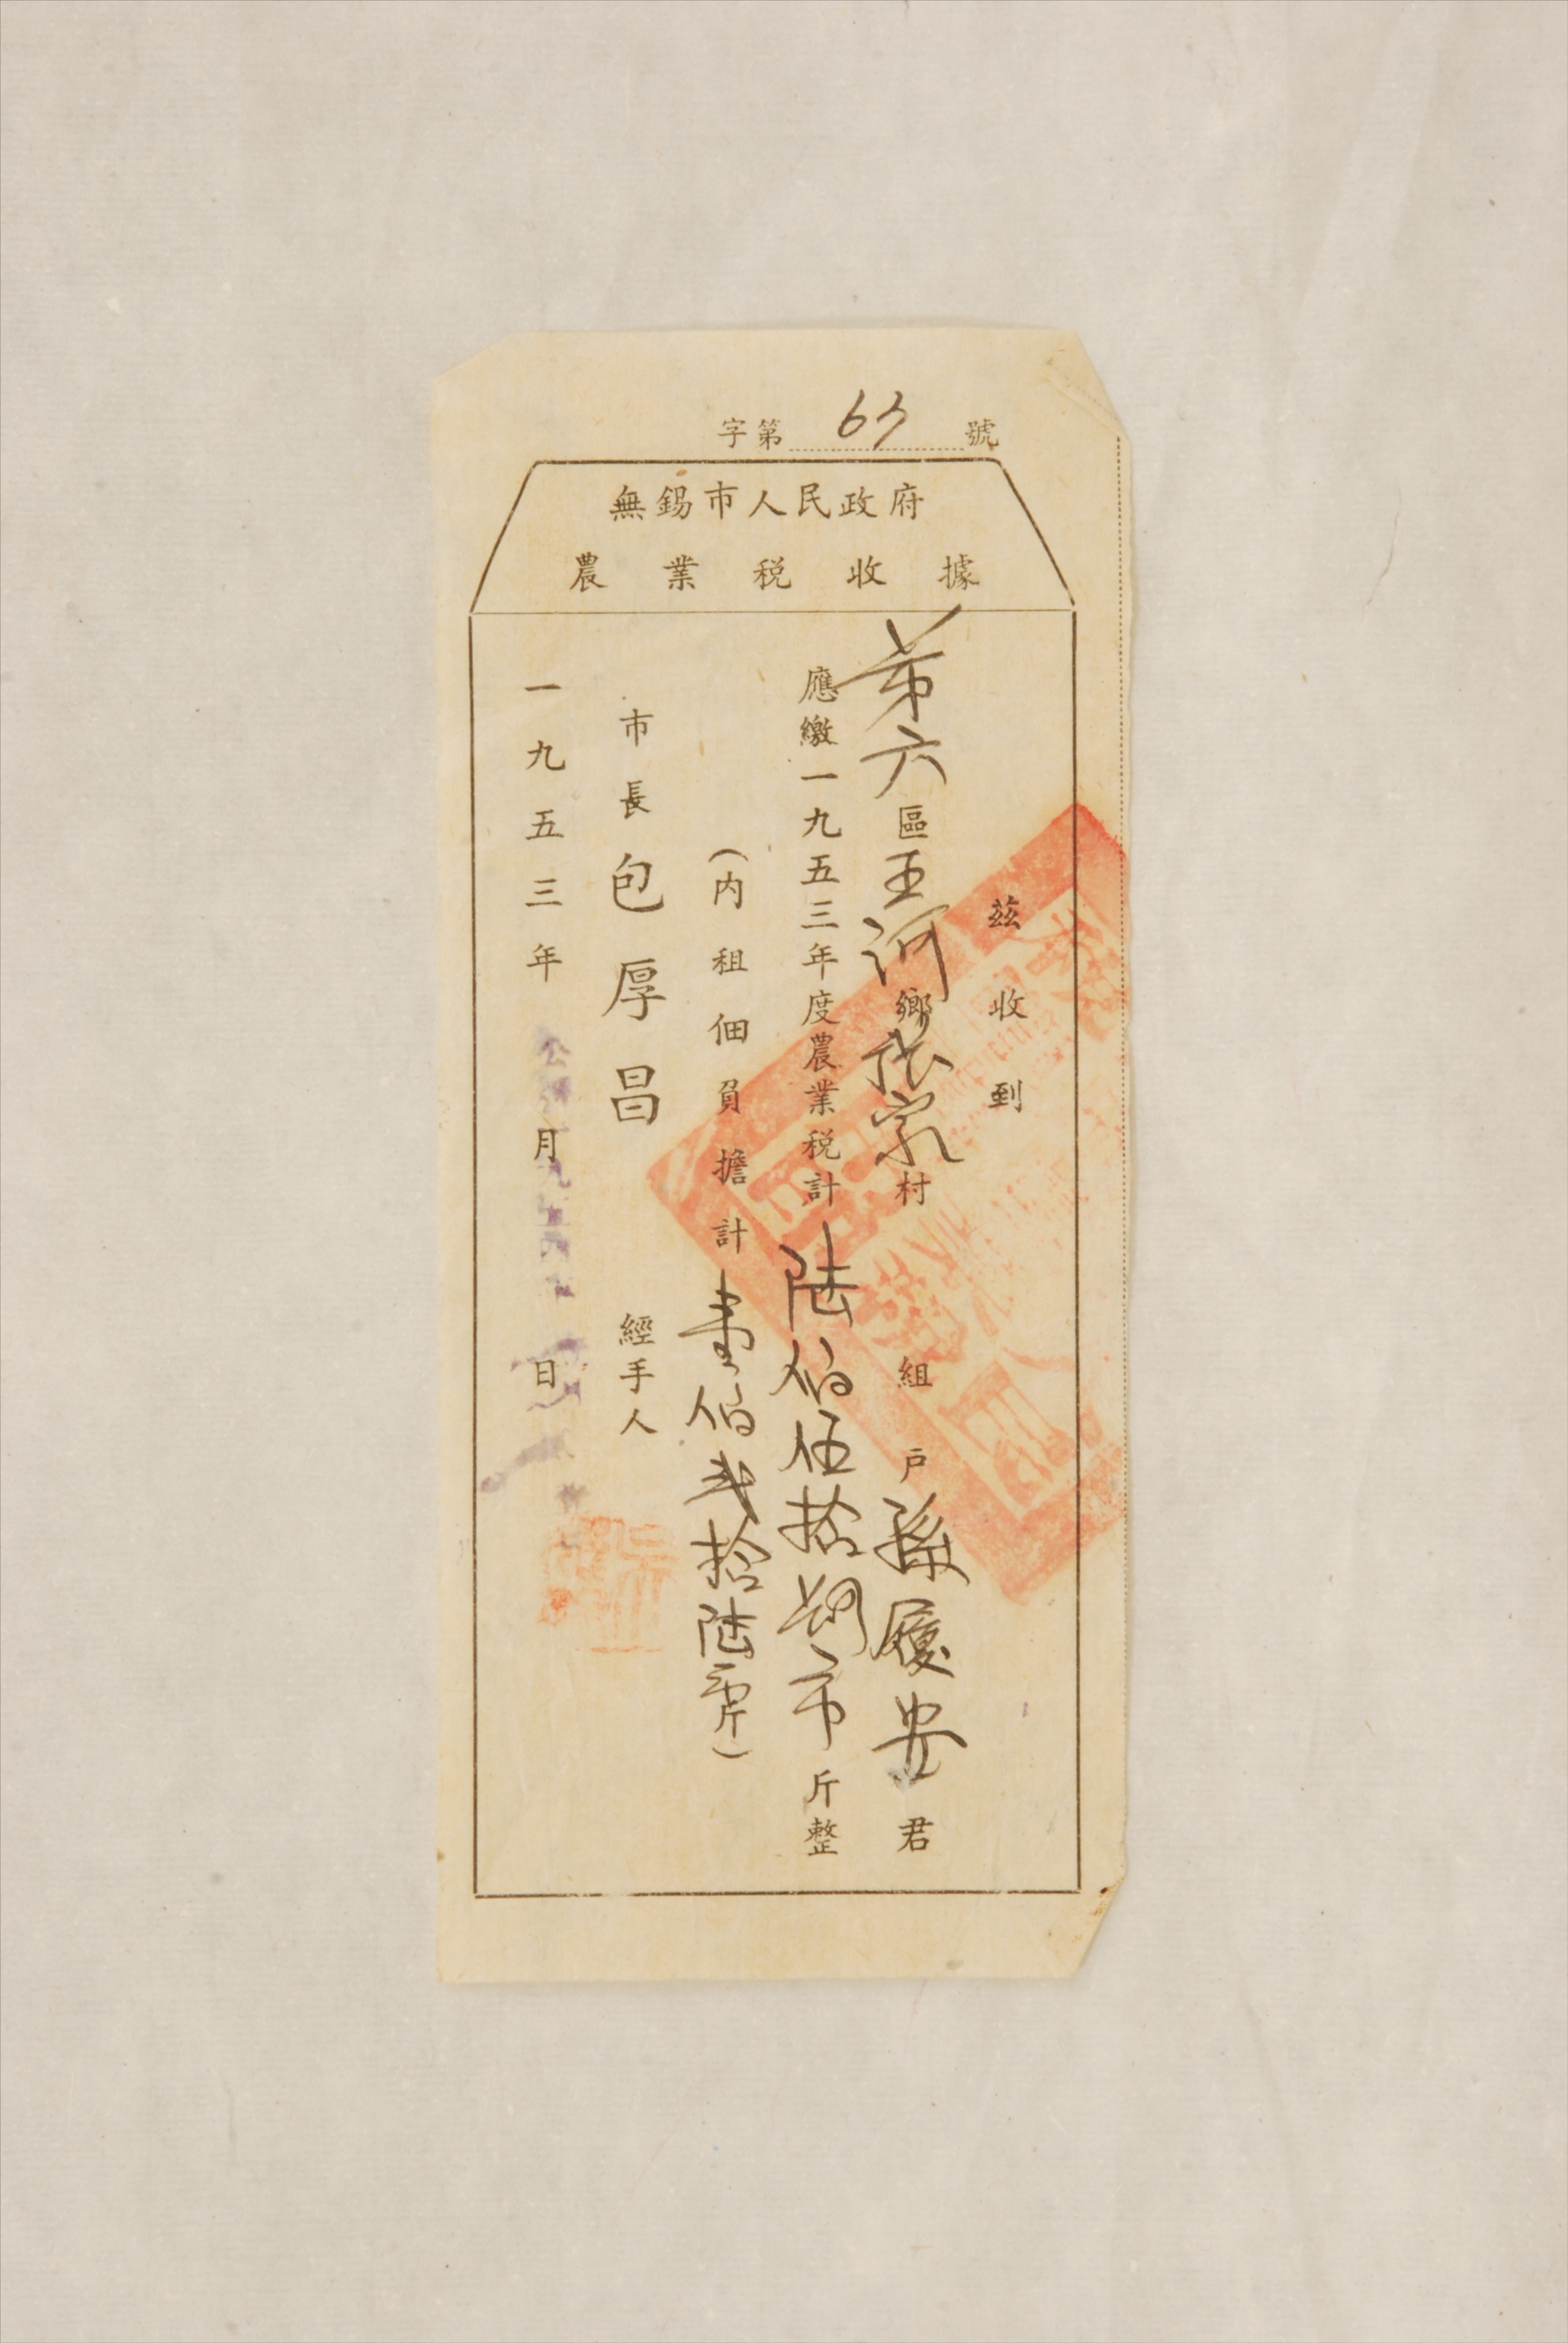 字第 65 號
無錫市人民政府
農業税收據
茲收到
第六區王河鄉張家村 組戶孫履安君
應繳一九五三年度農業税計陸佰伍拾捌市斤整
(内租佃負擔計壹佰弍拾陸市斤)
市長包厚昌 經手人
一九五三年 月 日